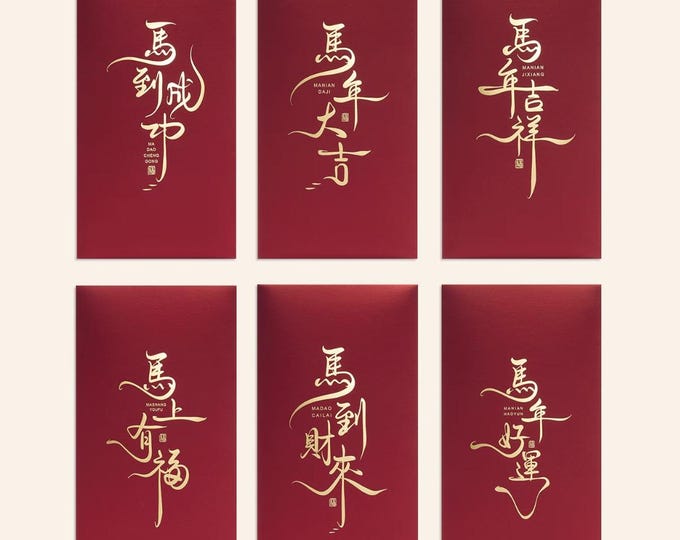 馬到成功
MA
DAO
CHENG
GONG
馬年大吉
MANIAN
DAJI
馬年吉祥
MANIAN
JIXIANG
馬上有福
MASHANG
YOUFU
馬到財來
MADAO
CAILAI
馬年好運
MANIAN
HAOYUN